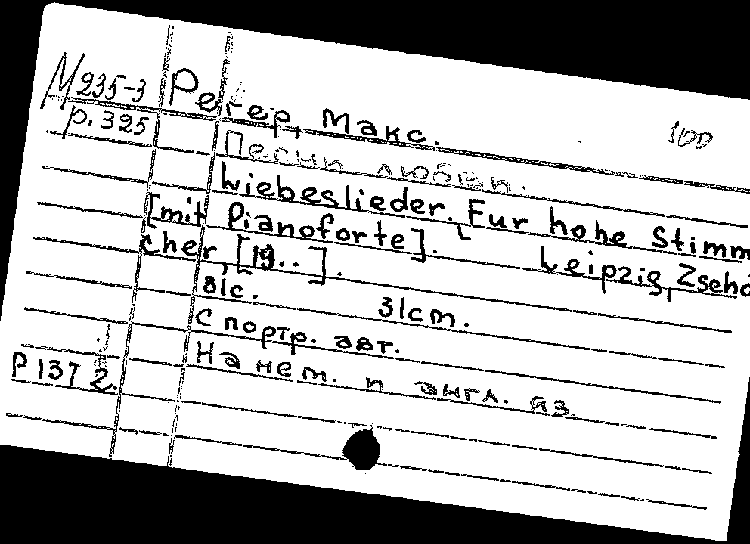 М 235-3
р. 325
Регер, Макс.
100
Песни любви.
Liebeslieder. Fur hohe Stimm
[mit Pianoforte]. Leipzig, Zsch
cher, [19..].
81с. 31cm.
С портр. авт.
На нем. и англ. яз.
Р 137 2.